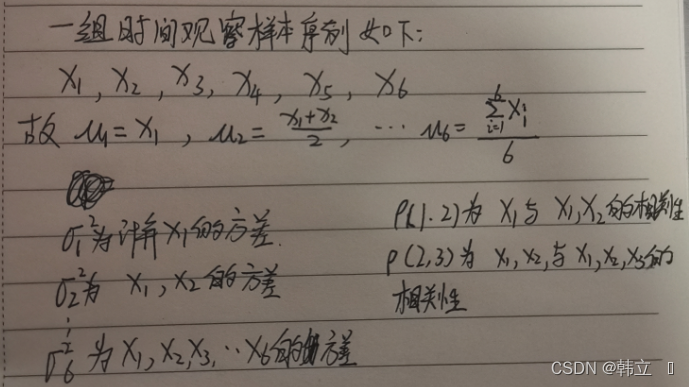 一组时间观察样本序列如下:
X1, X2, X3, X4, X5, X6
故 μ1=X1, μ2=(X1+X2)/2, ⋯ μ6=(∑_{i=1}^{6} Xi)/6
σ1²为计算X1的方差.
σ2²为 X1, X2的方差
⋮
σ6²为X1, X2, X3, ⋯X6的方差
ρ(1.2)为 X1与X1,X2的相关性
ρ(2,3)为 X1, X2,与X1,X2,X3的
相关性
CSDN @韩立